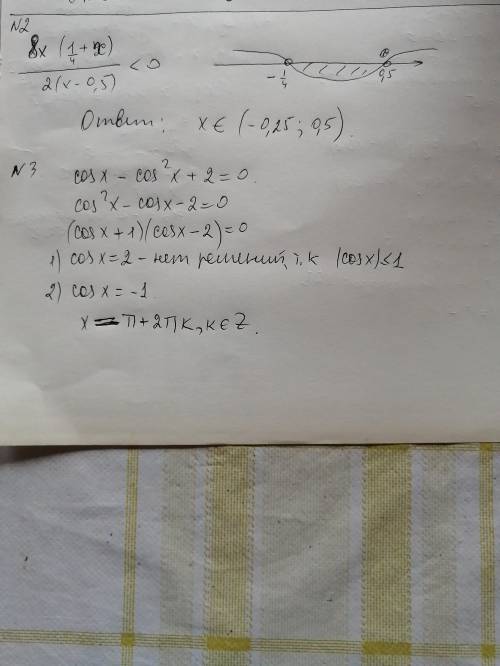 N2
8x (1/4 + x) / 2(x - 0,5) < 0
-1/4 0,5
Ответ: x ∈ (-0,25; 0,5).
N3
cosx - cos²x + 2 = 0.
cos²x - cosx - 2 = 0
(cosx + 1)(cosx - 2) = 0
1) cosx = 2 - нет решений, т.к |cosx| ≤ 1
2) cosx = -1.
x = π + 2πk, k ∈ Z.